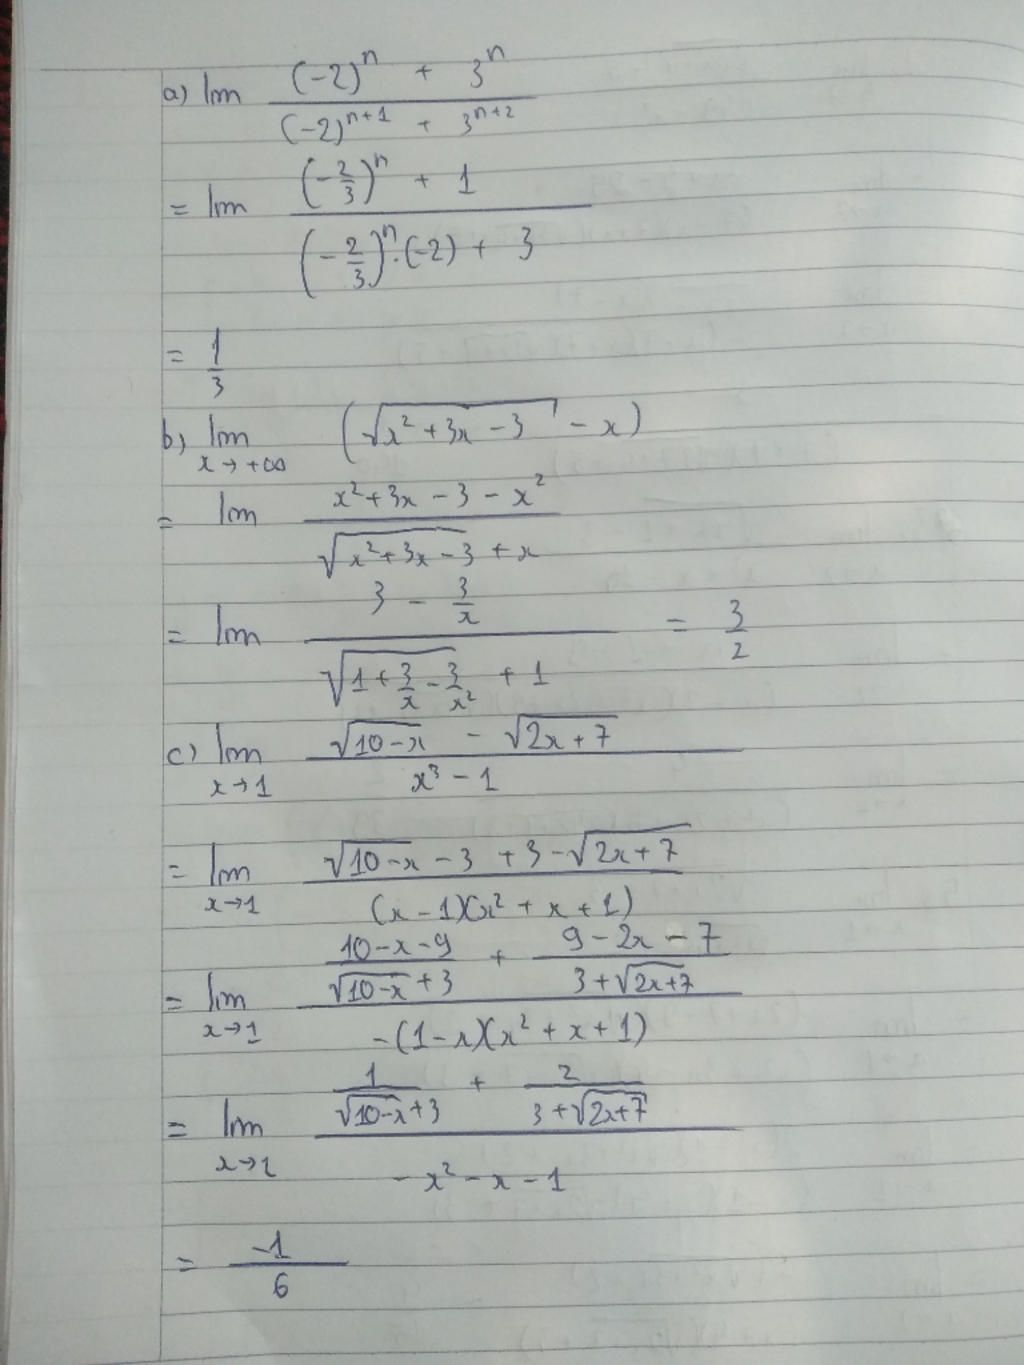 a) lim ((-2)^n + 3^n) / ((-2)^{n+1} + 3^{n+2})
= lim ((-2/3)^n + 1) / ((-2/3)^n . (-2) + 3)
= 1/3
b) lim x→+∞ (√(x² + 3x - 3) - x)
= lim (x² + 3x - 3 - x²) / (√(x² + 3x - 3) + x)
= lim (3 - 3/x) / (√(1 + 3/x - 3/x²) + 1) = 3/2
c) lim x→1 (√(10-x) - √(2x+7)) / (x³ - 1)
= lim x→1 (√(10-x) - 3 + 3 - √(2x+7)) / ((x-1)(x² + x + 1))
= lim x→1 ((10-x-9)/(√(10-x) + 3) + (9-2x-7)/(3+√(2x+7))) / (-(1-x)(x² + x + 1))
= lim x→1 (1/(√(10-x)+3) + 2/(3+√(2x+7))) / (-x² - x - 1)
= -1/6